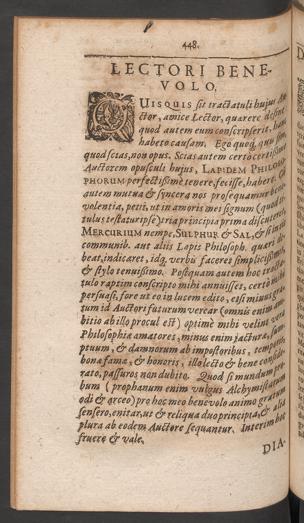 448.
LECTORI BENE-
VOLO.
QUISQUIS sit tractatuli hujus Au-
ctor, amice Lector, quærere desine:
quod autem eum conscripserit, hanc
habeto causam. Ego quod, quis sim,
quod scias, non opus. Scias autem certò certissimè
Auctorem opusculi hujus, LAPIDEM PHILOSO-
PHORUM perfectissimè tenere, fecisse, habere.
autem mutua & syncera nos prosequamur bene-
volentia, petii, ut in amoris mei signum (quod ti-
tulus testatur ipse) tria principia prima discuteret
MERCURIUM nempe, SULPHUR & SAL, & si in
communib. aut aliis Lapis Philosoph. quæri de-
beat, indicaret, idq, verbis faceres simplicissimis
& stylo tenuissimo. Postquam autem hoc tracta-
tulo raptim conscripto mihi annuisset, certò mihi
persuasi, fore ut eo in lucem edito, etsi minus gra-
tum id Auctori futurum verear (omnis enim am-
bitio ab illo procul est) optimè mihi velint veræ
Philosophiæ amatores, minus enim jacturæ, sum-
ptuum, & damnorum ab impostoribus, temporis,
bonæ famæ, & honoris, illo lecto & bene conside-
rato, passuros non dubito. Quod si mundum pro-
bum (prophanum enim vulgus Alchymistarum
odi & arceo) pro hoc meo benevolo animo gratum
sensero, enitar, ut & reliqua duo principia, & alia
plura ab eodem Auctore sequantur. Interim hoc
fruere & vale.
DIA-